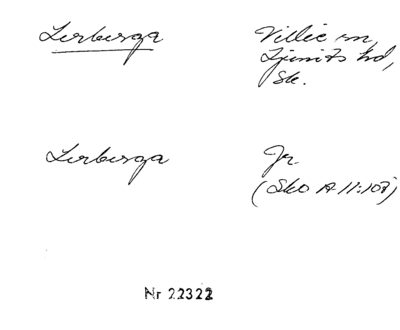 Lerberga
Villie sn,
Ljunits hd,
Sk.
Lerberga
Jr.
(SkO A 11:107)
Nr 22322